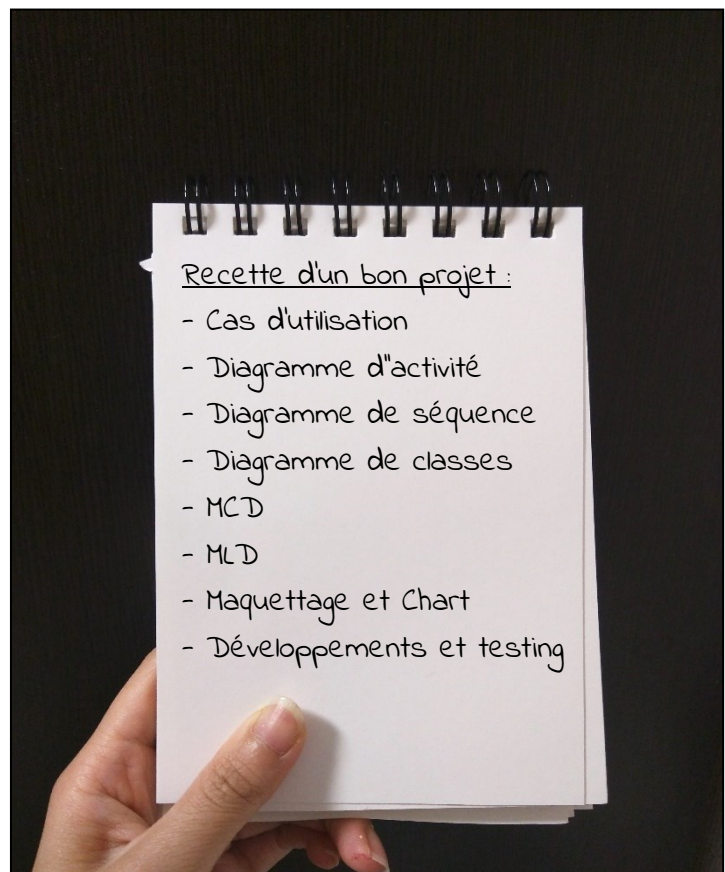 Recette d'un bon projet :
- Cas d'utilisation
- Diagramme d"activité
- Diagramme de séquence
- Diagramme de classes
- MCD
- MLD
- Maquettage et Chart
- Développements et testing